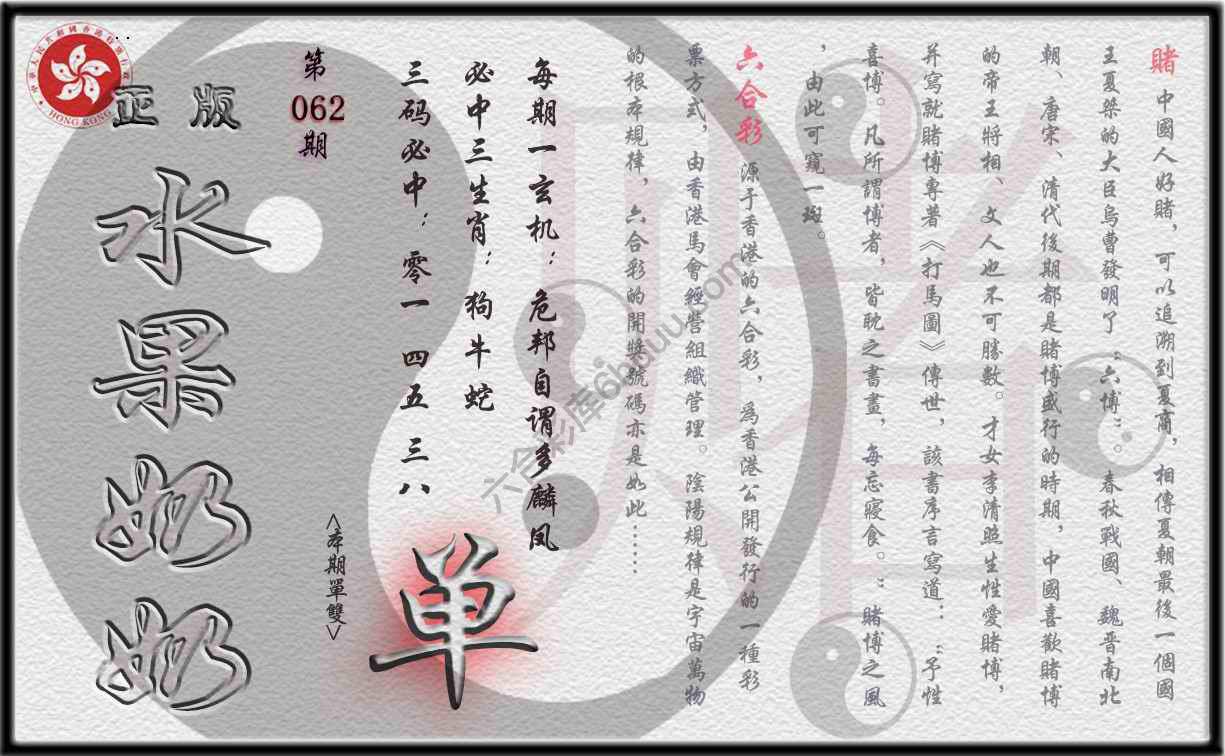 賭 中國人好賭，可以追溯到夏商，相傳夏朝最後一個國
王夏桀的大臣烏曹發明了“六博”。春秋戰國、魏晋南北
朝、唐宋、清代後期都是賭博盛行的時期，中國喜歡賭博
的帝王將相、文人也不可勝數。才女李清照生性愛賭博，
并寫就賭博專著《打馬圖》傳世，該書序言寫道：“予性
喜博。凡所謂博者，皆耽之書畫，每忘寢食。”賭博之風
，由此可窺一斑。
六合彩 源于香港的六合彩，爲香港公開發行的一種彩
票方式，由香港馬會經營組織管理。陰陽規律是宇宙萬物
的根本規律，六合彩的開獎號碼亦是如此……
每期一玄机：危邦自谓多麟凤
必中三生肖：狗牛蛇
三码必中：零一 四五 三八
<本期單雙>
单
第
062
期
正版
水果奶奶
中華人民共和國香港特別行政區
HONG KONG
六合彩库6hduu.com